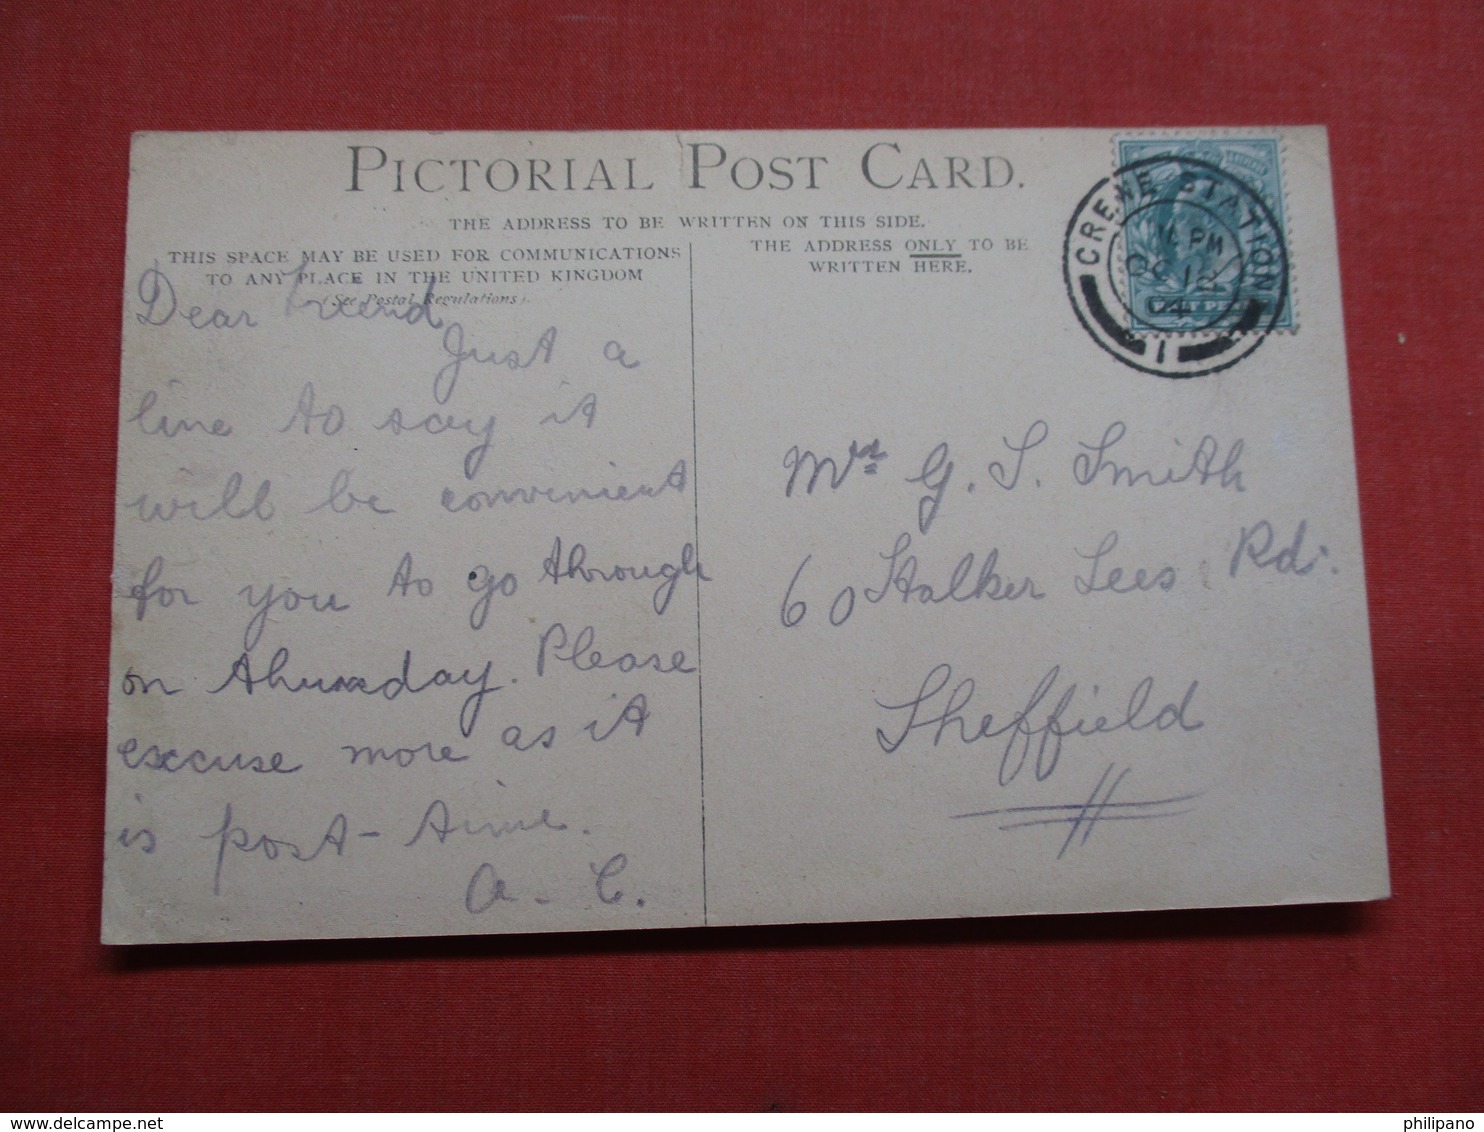 PICTORIAL POST CARD.
THE ADDRESS TO BE WRITTEN ON THIS SIDE.
THIS SPACE MAY BE USED FOR COMMUNICATIONS
TO ANY PLACE IN THE UNITED KINGDOM
(See Postal Regulations).
THE ADDRESS ONLY TO BE
WRITTEN HERE.
Dear Friend,
Just a
line to say it
will be convenient
for you to go through
on thursday. Please
excuse more as it
is post-time.
A. C.
G. S. Smith
60 Stalker Lees Rd.
Sheffield
CREWE STATION
PM
OC 12
04
1
www.delcampe.net
philipano